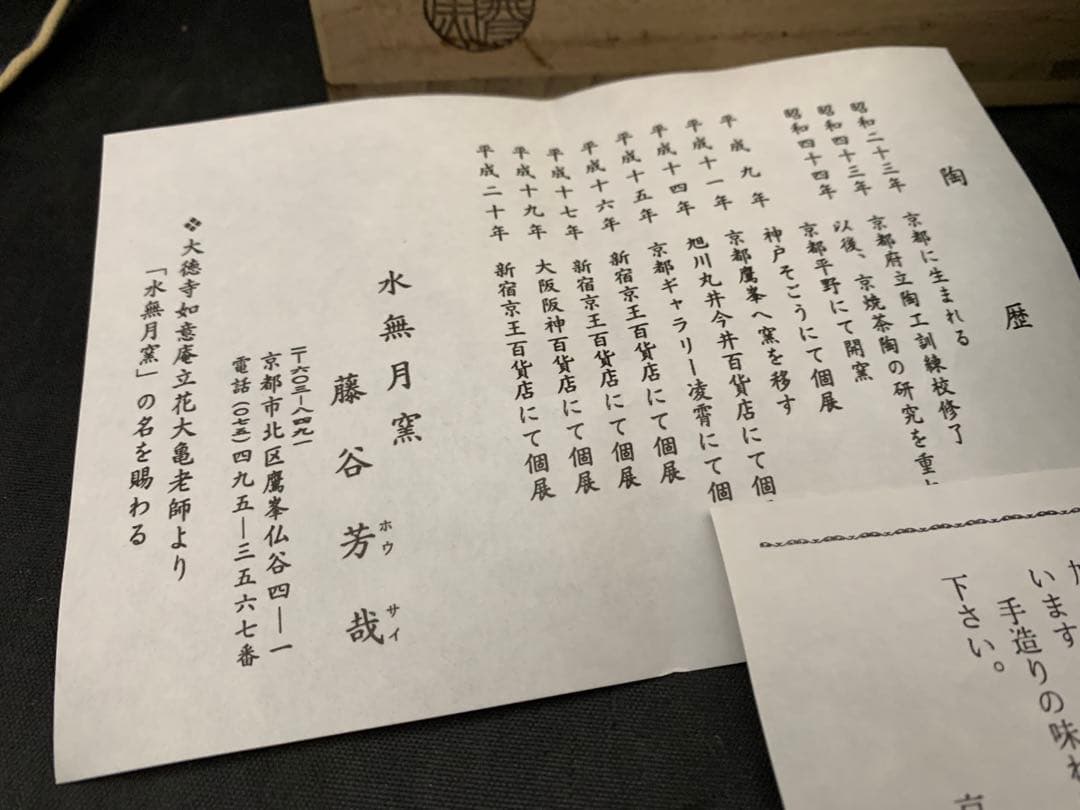 陶歴
昭和二十三年 京都に生まれる
昭和四十三年 京都府立陶工訓練校修了
昭和四十四年 以後、京焼茶陶の研究を重
京都平野にて開窯
平成九年 神戸そごうにて個展
平成十一年 京都鷹峯へ窯を移す
平成十四年 旭川丸井今井百貨店にて個
平成十五年 京都ギャラリー凌霄にて個
平成十六年 新宿京王百貨店にて個展
平成十七年 新宿京王百貨店にて個展
平成十九年 大阪阪神百貨店にて個展
平成二十年 新宿京王百貨店にて個展
水無月窯
ホウサイ
藤谷芳哉
〒六〇三―八四九一
京都市北区鷹峯仏谷四―一
電話(〇七五)四九五―三五六七番
❖大徳寺如意庵立花大亀老師より
「水無月窯」の名を賜わる
います
手造りの味わ
下さい。